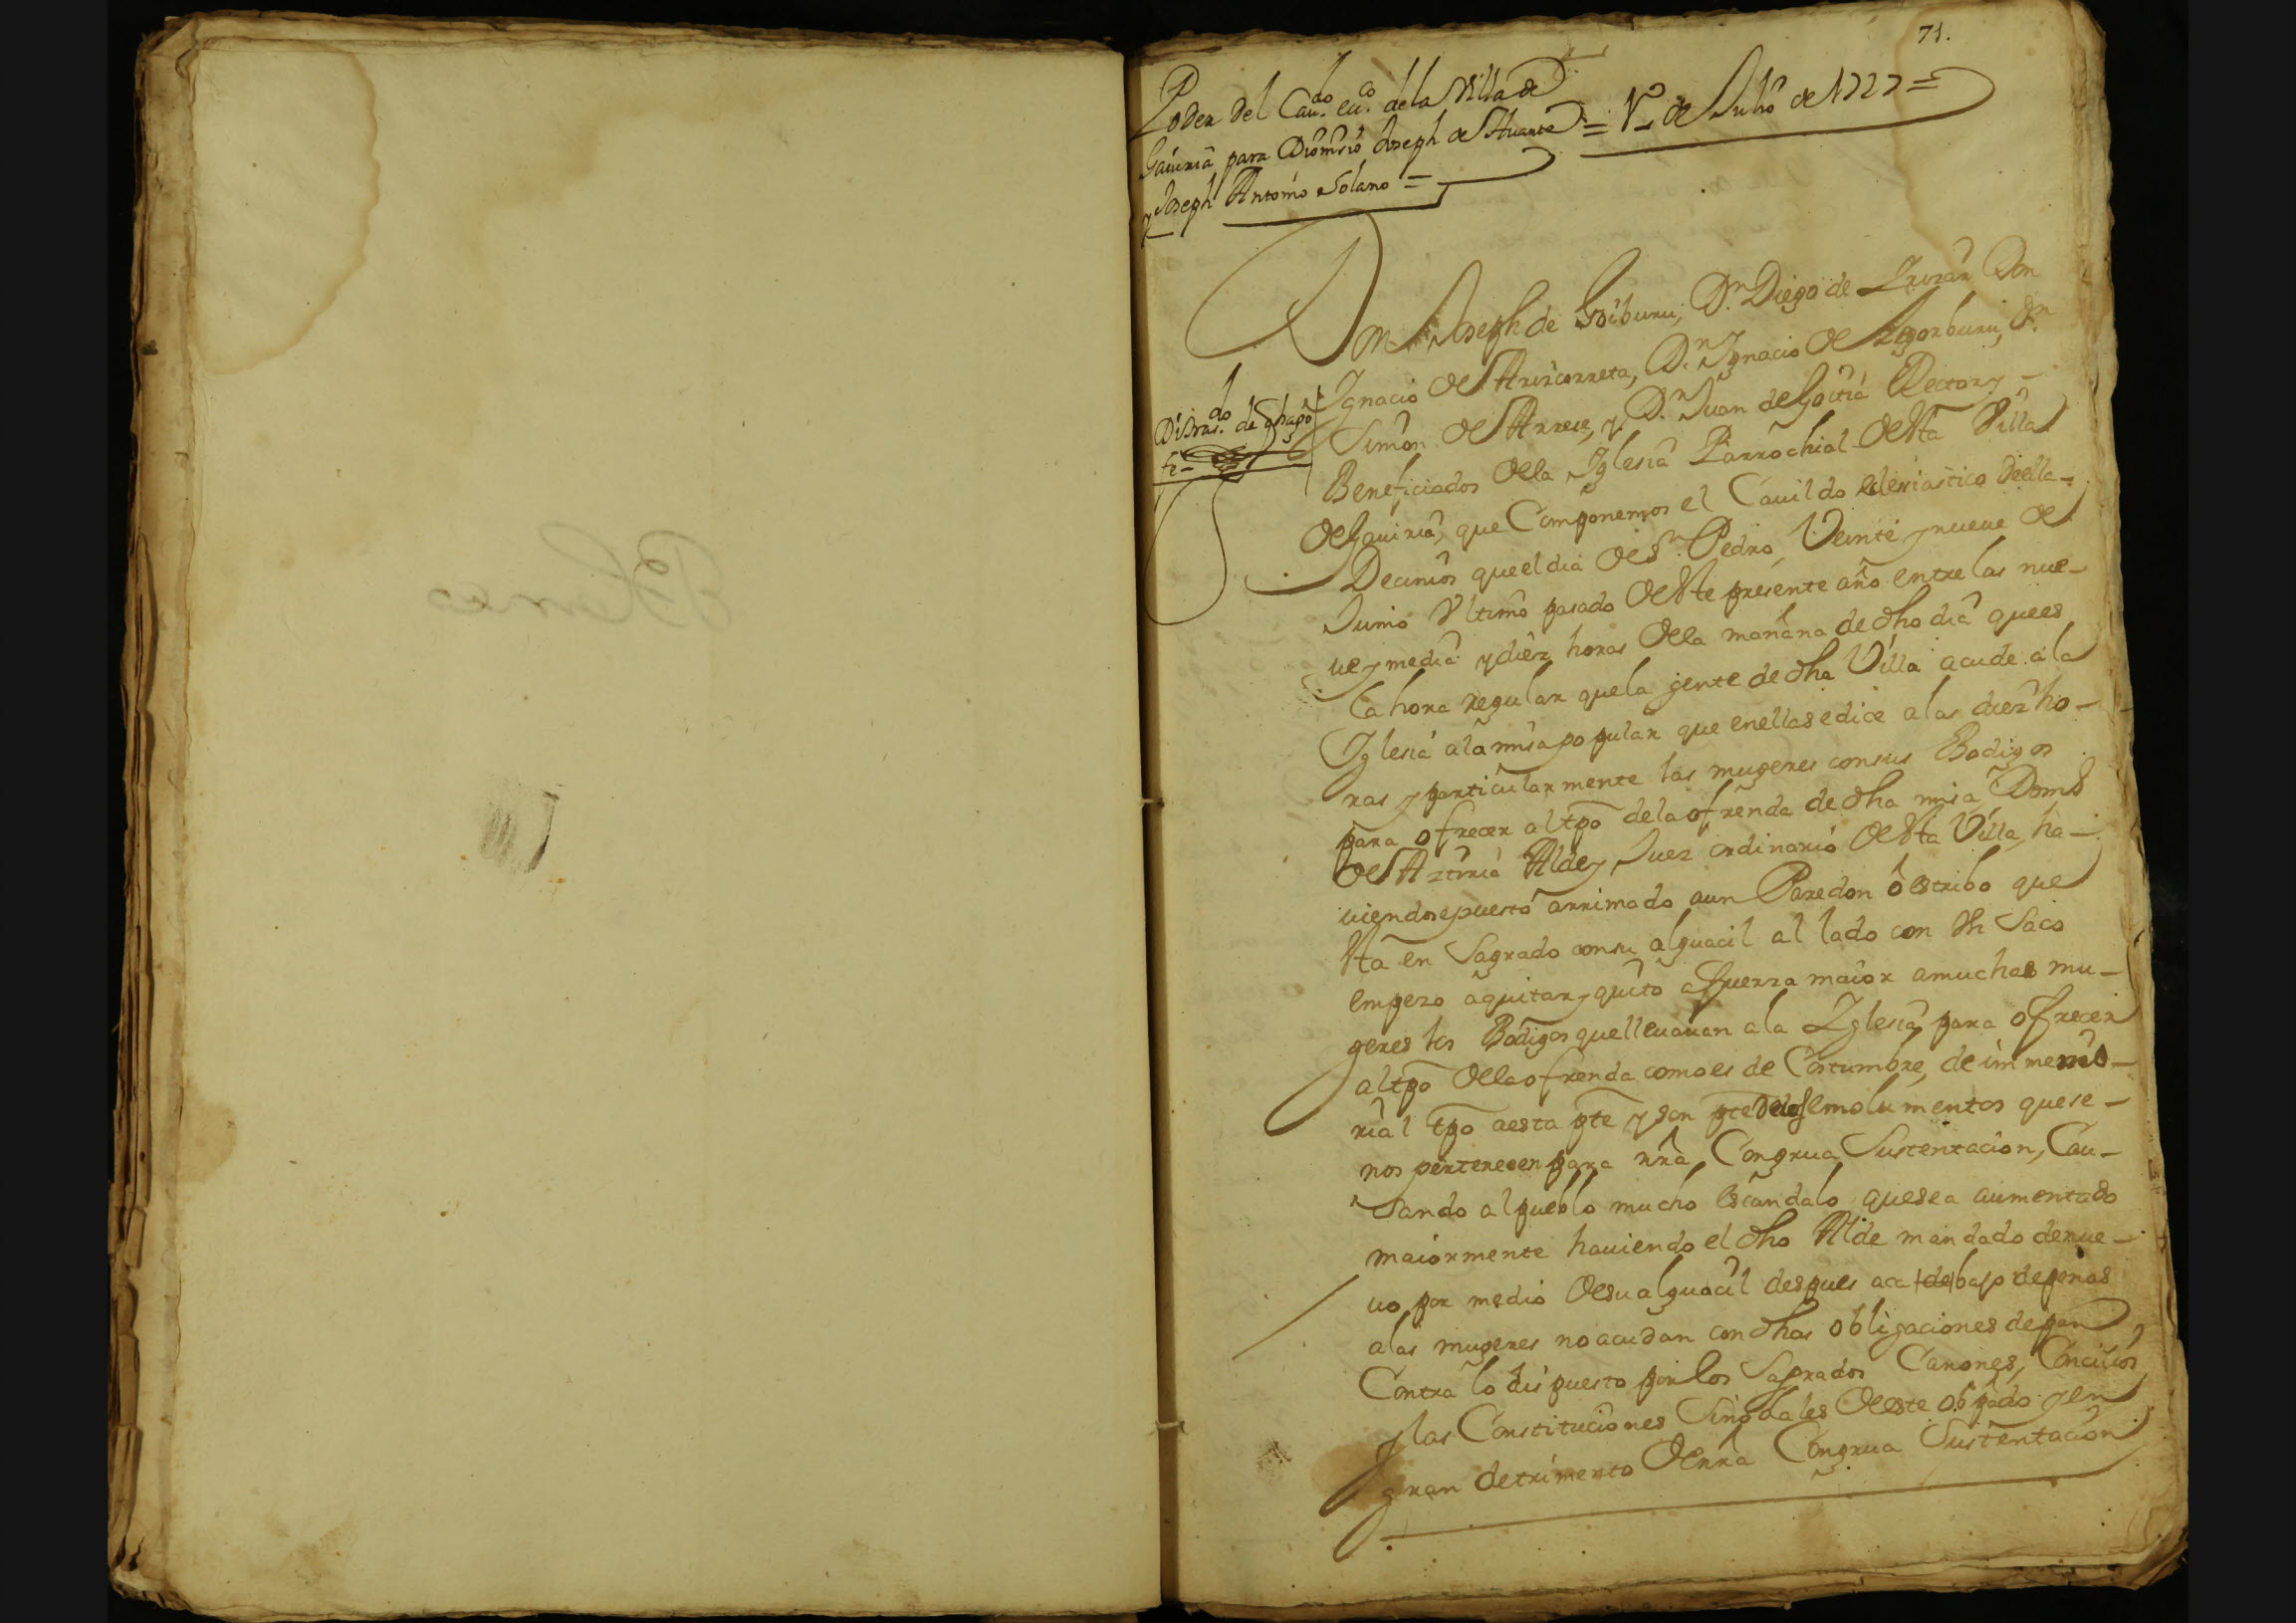 71.
Poder del Cau.do ecc.co dela Villa de
Gauiria para Dionisio Joseph de Aluarte = 1.o de Julio de 1727 =
y Joseph Antonio Solano =
Don Joseph de Goiburu, D.n Diego de Irizar Don
Ignacio de Arizcorreta, D.n Ignacio de Legorburu, D.n
Simon de Arrese, y D.n Juan de Goitia Rector y
Beneficiados dela Iglesia Parrochial desta Villa
de Gauiria, que Componemos el Cauildo eclesiastico deella
Decimos que el dia de S.n Pedro Veinte y nueue de
Junio Vltimo pasado deste presente año entre las nue-
ue y media y diez horas dela mañana de dho dia que es
la hora regular que la gente de dha Villa acude a la
Iglesia ala misa popular que en ella se dice a las diez ho-
ras y particularmente las mugeres con sus Bodigos
para ofrecer al tpo dela ofrenda de dha misa Dom.o
de Azturia Alde y Juez ordinario desta Villa, ha-
uiendose puesto arrimado a un Paredon o estribo que
sta en Sagrado con su alguacil al lado con Vn Saco
empezo a quitar y quito a fuerza maior a muchas mu-
geres los Bodigos que lleuauan a la Iglesia para ofrecer
al tpo dela ofrenda como es de Costumbre, de immemo-
rial tpo a esta pte y son pte delos emolumentos que se
nos pertenecen para nra Congrua Sustentacion, Cau-
sando al pueblo mucho escandalo que se a aumentado
maiormente hauiendo el dho Alde mandado de nue-
uo por medio de su alguacil despues aca de bajo de penas
a las mugeres no acudan con dhas obligaciones de pan
Contra lo dispuesto por los Sagrados Canones, Concilios
y las Constituciones Sinodales de este obpado y en
gran detrimento de nra Congrua Sustentacion